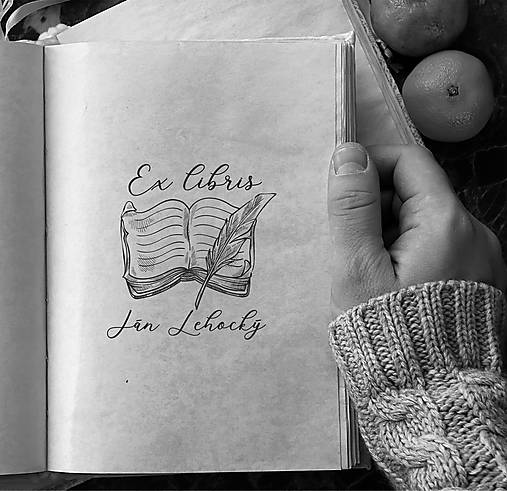 Ex libris
Ján Lehocký